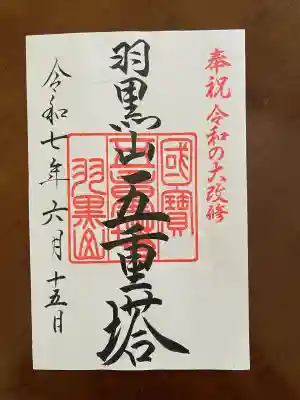 奉祝 令和の大改修
羽黒山五重塔
國寶
五重塔
羽黒山
令和七年六月十五日